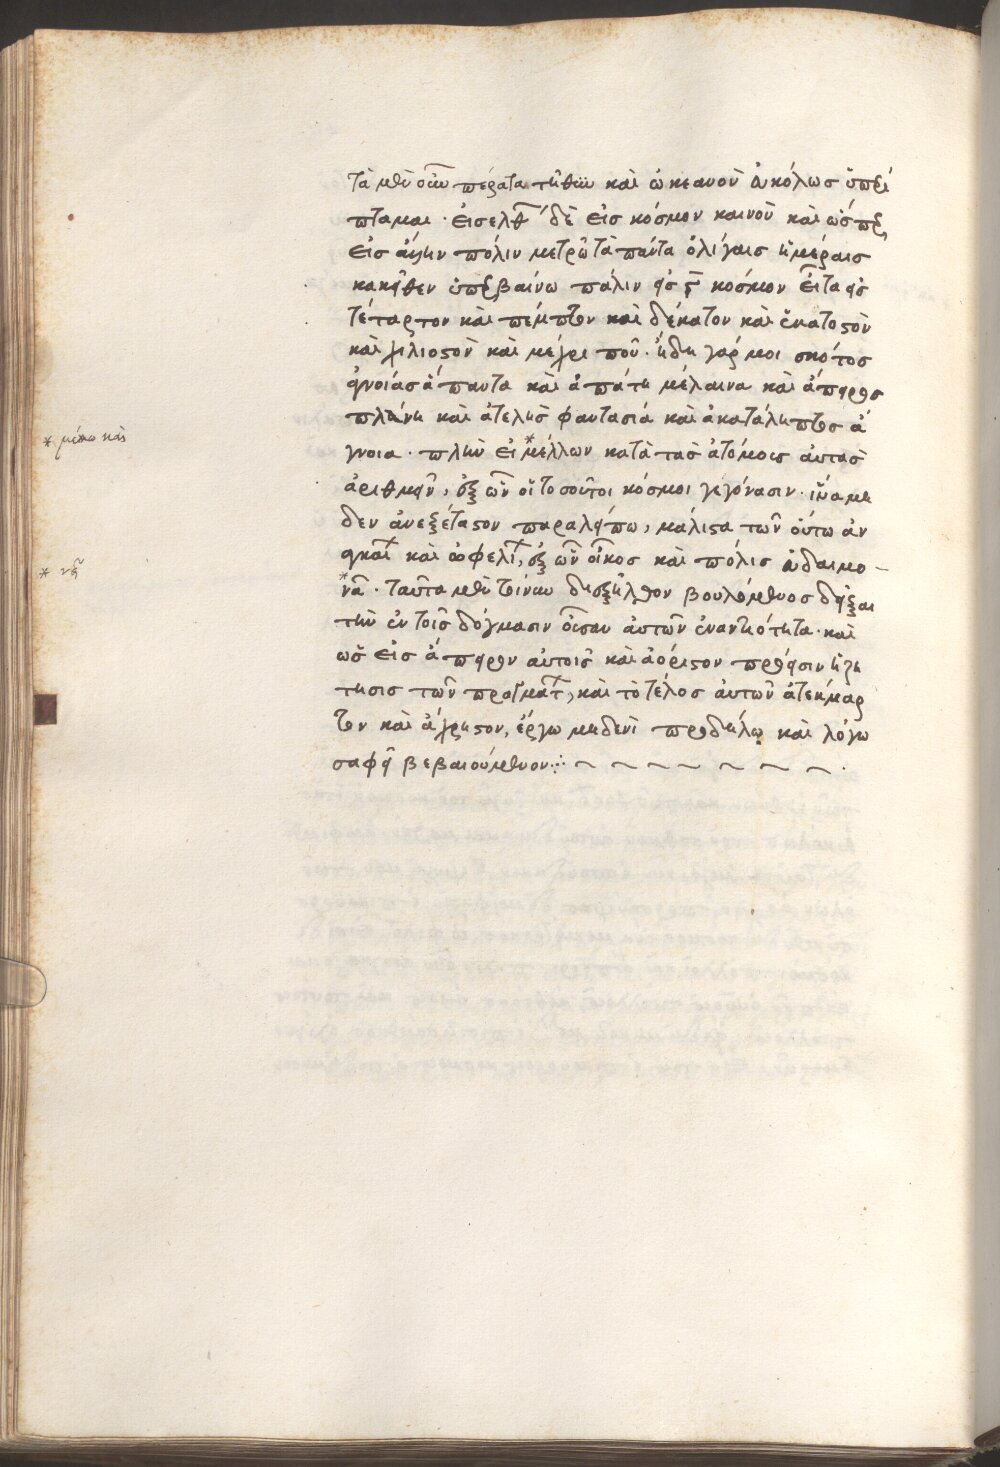 τὰ μὲν οὖν πέρατα τηθὺν καὶ ὠκεανὸν εὐκόλωσ ὑπερί
πταμαι · εἰσελθ δὲ εἰσ κόσμον καινὸν καὶ ὡσπερ
εἰσ ἄλλην πόλιν μετρῶ τὰ πάντα ὀλίγαισ ἡμέραισ
κακεῖθεν ὑπερβαίνω πάλιν εἰσ γ̄ κόσμον εἶτα εἰσ
τέταρτον καὶ πέμπτον καὶ δέκατον καὶ ἑκατοστὸν
καὶ χιλιοστὸν καὶ μέχρι ποῦ · ἤδη γάρ μοι σκότοσ
ἀγνοίασ ἅπαντα καὶ ἀπάτη μέλαινα καὶ ἄπειροσ
πλάνη καὶ ἀτελὴσ φαντασία καὶ ἀκατάληπτοσ ἄ
* μέλλω καὶ
γνοια · πλὴν εἰ *μέλλων κατὰ τασ ἀτόμοισ αὐτασ
ἀριθμεῖν, ἐξ ὧν οἱ τοσοῦτοι κόσμοι γεγόνασιν · ἵνα μη
δεν ἀνεξέταστον παραλείπω, μάλιστα τῶν οὕτω ἀν
αγκαί καὶ ὠφελί, ἐξ ὧν οἶκοσ καὶ πόλισ εὐδαιμο–
* νεῖ
*νᾶ · ταῦτα μὲν τοίνυν διεξῆλθον βουλόμενοσ δεῖξαι
τὴν ἐν τοῖσ δόγμασιν οὖσαν αὐτῶν ἐναντιότητα · καὶ
ωσ εἰσ ἄπειρον αὐτοισ καὶ ἀόριστον πρόεισιν ἡ ζη
τησισ τῶν πραγμάτ, καὶ τὸ τέλοσ αὐτῶν ἀτεκμαρ
τον καὶ ἄχρηστον, ἔργω μηδενὶ προδήλω καὶ λόγω
σαφεῖ βεβαιούμενον ⁘ ~ ~ ~ ~ ~ ~ ~ ·